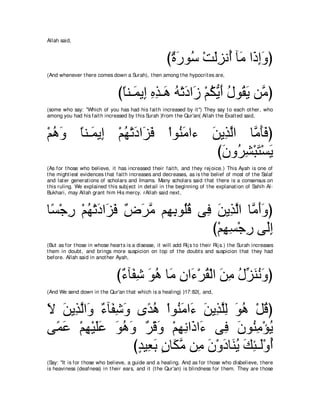 Allah said,
(وَإِذَا مَآ أُنزِلَتْ سُورَةٌ)
(And whenever there comes down a Surah), then among the hypocrites are,
(مَّن يَقُولُ أَيُّكُمْ زَادَتْهُ هَـذِهِ إِيمَـناً)
(some who say: "Which of you has had his faith increased by it") They say to each other, who
among you had his faith increased by this Surah )from the Qur'an( Allah the Exalted said,
(فَأَمَّا الَّذِينَ ءامَنُواْ فَزَادَتْهُمْ إِيمَـناً وَهُمْ
يَسْتَبْشِرُونَ)
(As for those who believe, it has increased their faith, and they rejoice.) This Ayah is one of
the mightiest evidences that faith increases and decreases, as is the belief of most of the Salaf
and later generations of scholars and Imams. Many scholars said that there is a consensus on
this ruling. We explained this subject in detail in the beginning of the explanation of Sahih Al-
Bukhari, may Allah grant him His mercy. rAllah said next,
(وَأَمَّا الَّذِينَ فِى قُلُوبِهِم مَّرَضٌ فَزَادَتْهُمْ رِجْسًا
إِلَى رِجْسِهِمْ)
(But as for those in whose hearts is a disease, it will add Rijs to their Rijs.) the Surah increases
them in doubt, and brings more suspicion on top of the doubts and suspicion that they had
before. Allah said in another Ayah,
(وَنُنَزِّلُ مِنَ الْقُرْءَانِ مَا هُوَ شِفَآءٌ)
(And We send down in the Qur'an that which is a healing) )17:82(, and,
(قُلْ هُوَ لِلَّذِينَ ءَامَنُواْ هُدًى وَشِفَآءٌ وَالَّذِينَ لاَ
يُؤْمِنُونَ فِى ءَاذَانِهِمْ وَقْرٌ وَهُوَ عَلَيْهِمْ عَمًى
أُوْلَـئِكَ يُنَادَوْنَ مِن مَّكَانٍ بَعِيدٍ)
(Say: "It is for those who believe, a guide and a healing. And as for those who disbelieve, there
is heaviness (deafness) in their ears, and it (the Qur'an) is blindness for them. They are those